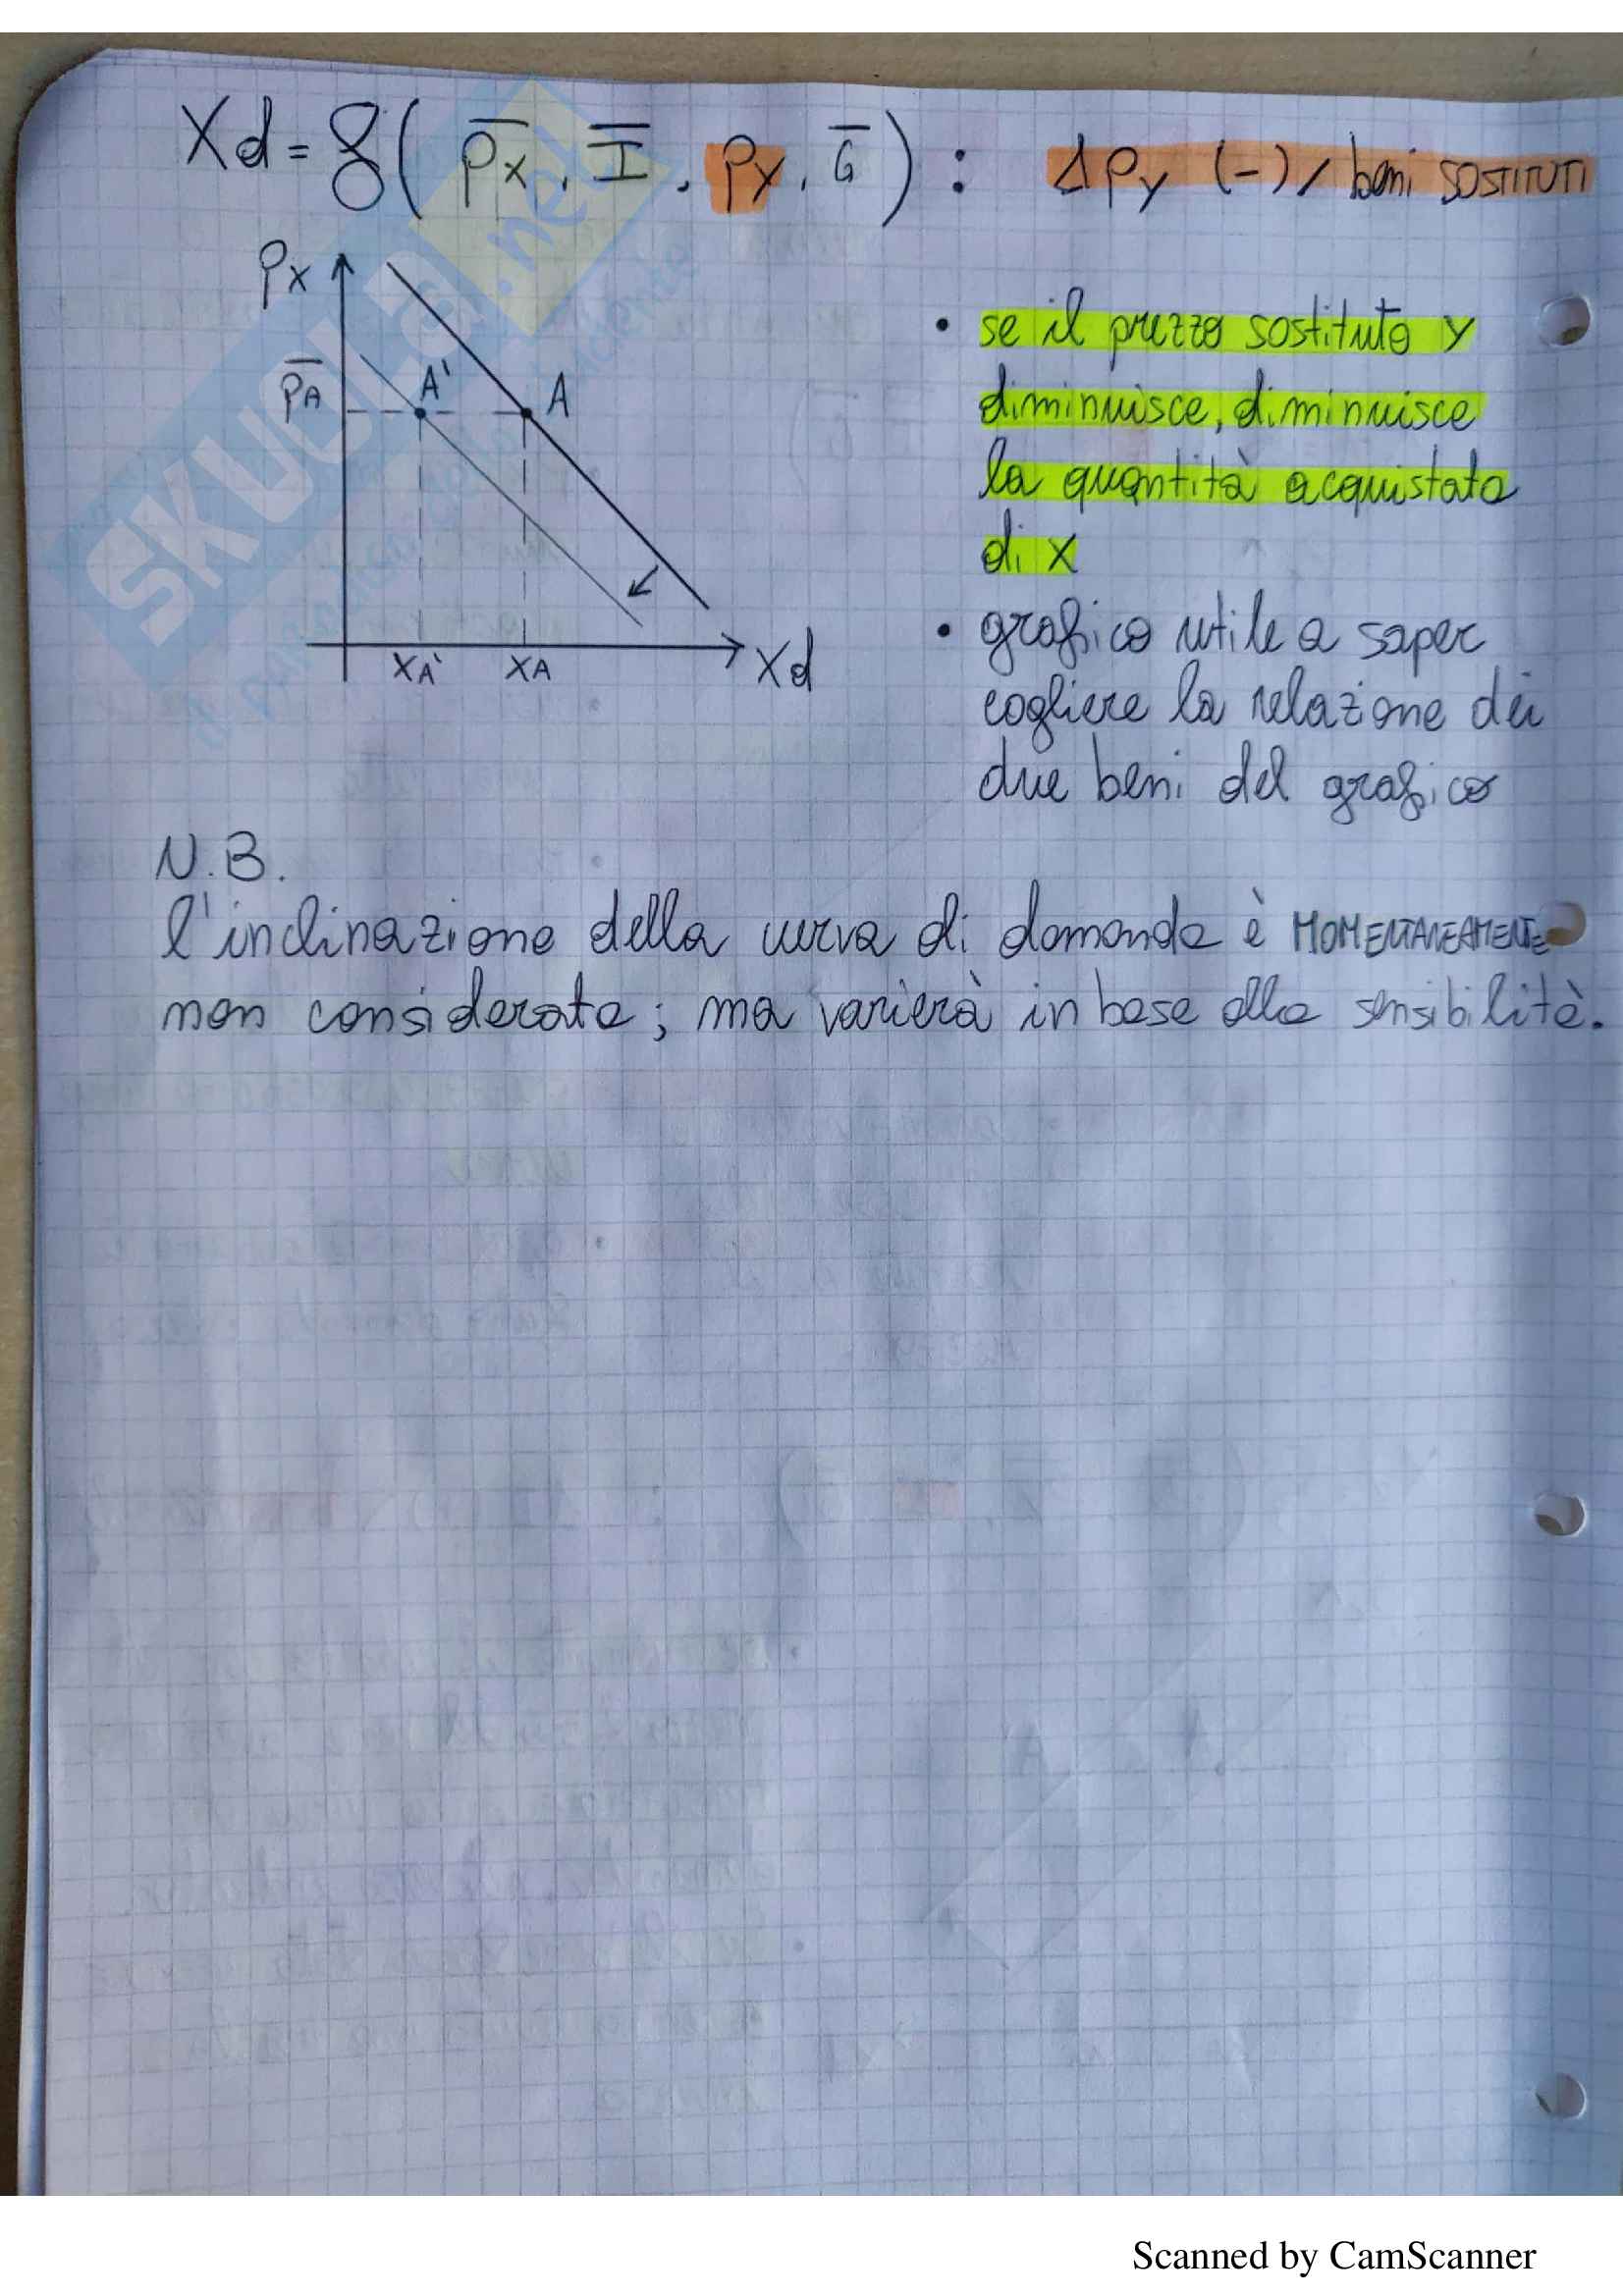 Xd = f( p̅x, I̅, py, G̅ ) : Δpy (-) / beni SOSTITUTI
px
p̅A
A'
A
xA'
xA
Xd
• se il prezzo sostituto y
diminuisce, diminuisce
la quantità acquistata
di x
• grafico utile a saper
cogliere la relazione dei
due beni del grafico
N.B.
l'inclinazione della curva di domanda è MOMENTANEAMENTE
non considerata; ma varierà in base alla sensibilità.
SKUOLA.net
Scanned by CamScanner